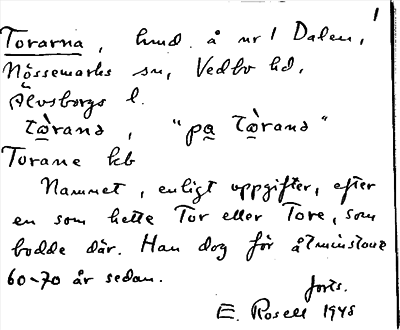 1
Torarna, hmd. å nr 1 Dalen,
Nössemarks sn, Vedbo hd,
Älvsborgs l.
tὼranə, "pa tὼranə"
Torane kb
Namnet, enligt uppgifter, efter
en som hette Tor eller Tore, som
bodde där. Han dog för åtminstone
60-70 år sedan.
forts.
E. Rosell 1948